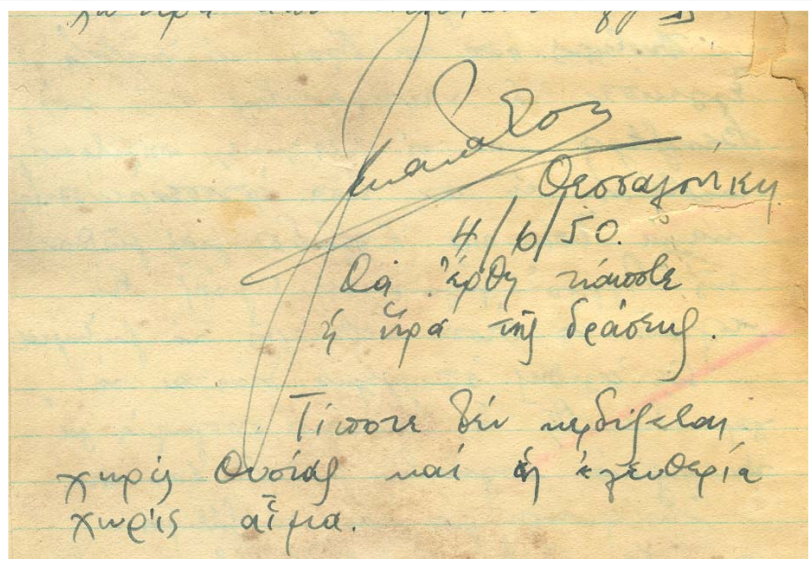 Θεσσαλονίκη
4/6/50.
Θά ἔρθῃ κάποτε
ἡ ὥρα τῆς δράσεως.
Τίποτε δέν κερδίζεται
χωρίς θυσίας καί ἡ ἐλευθερία
χωρίς αἷμα.